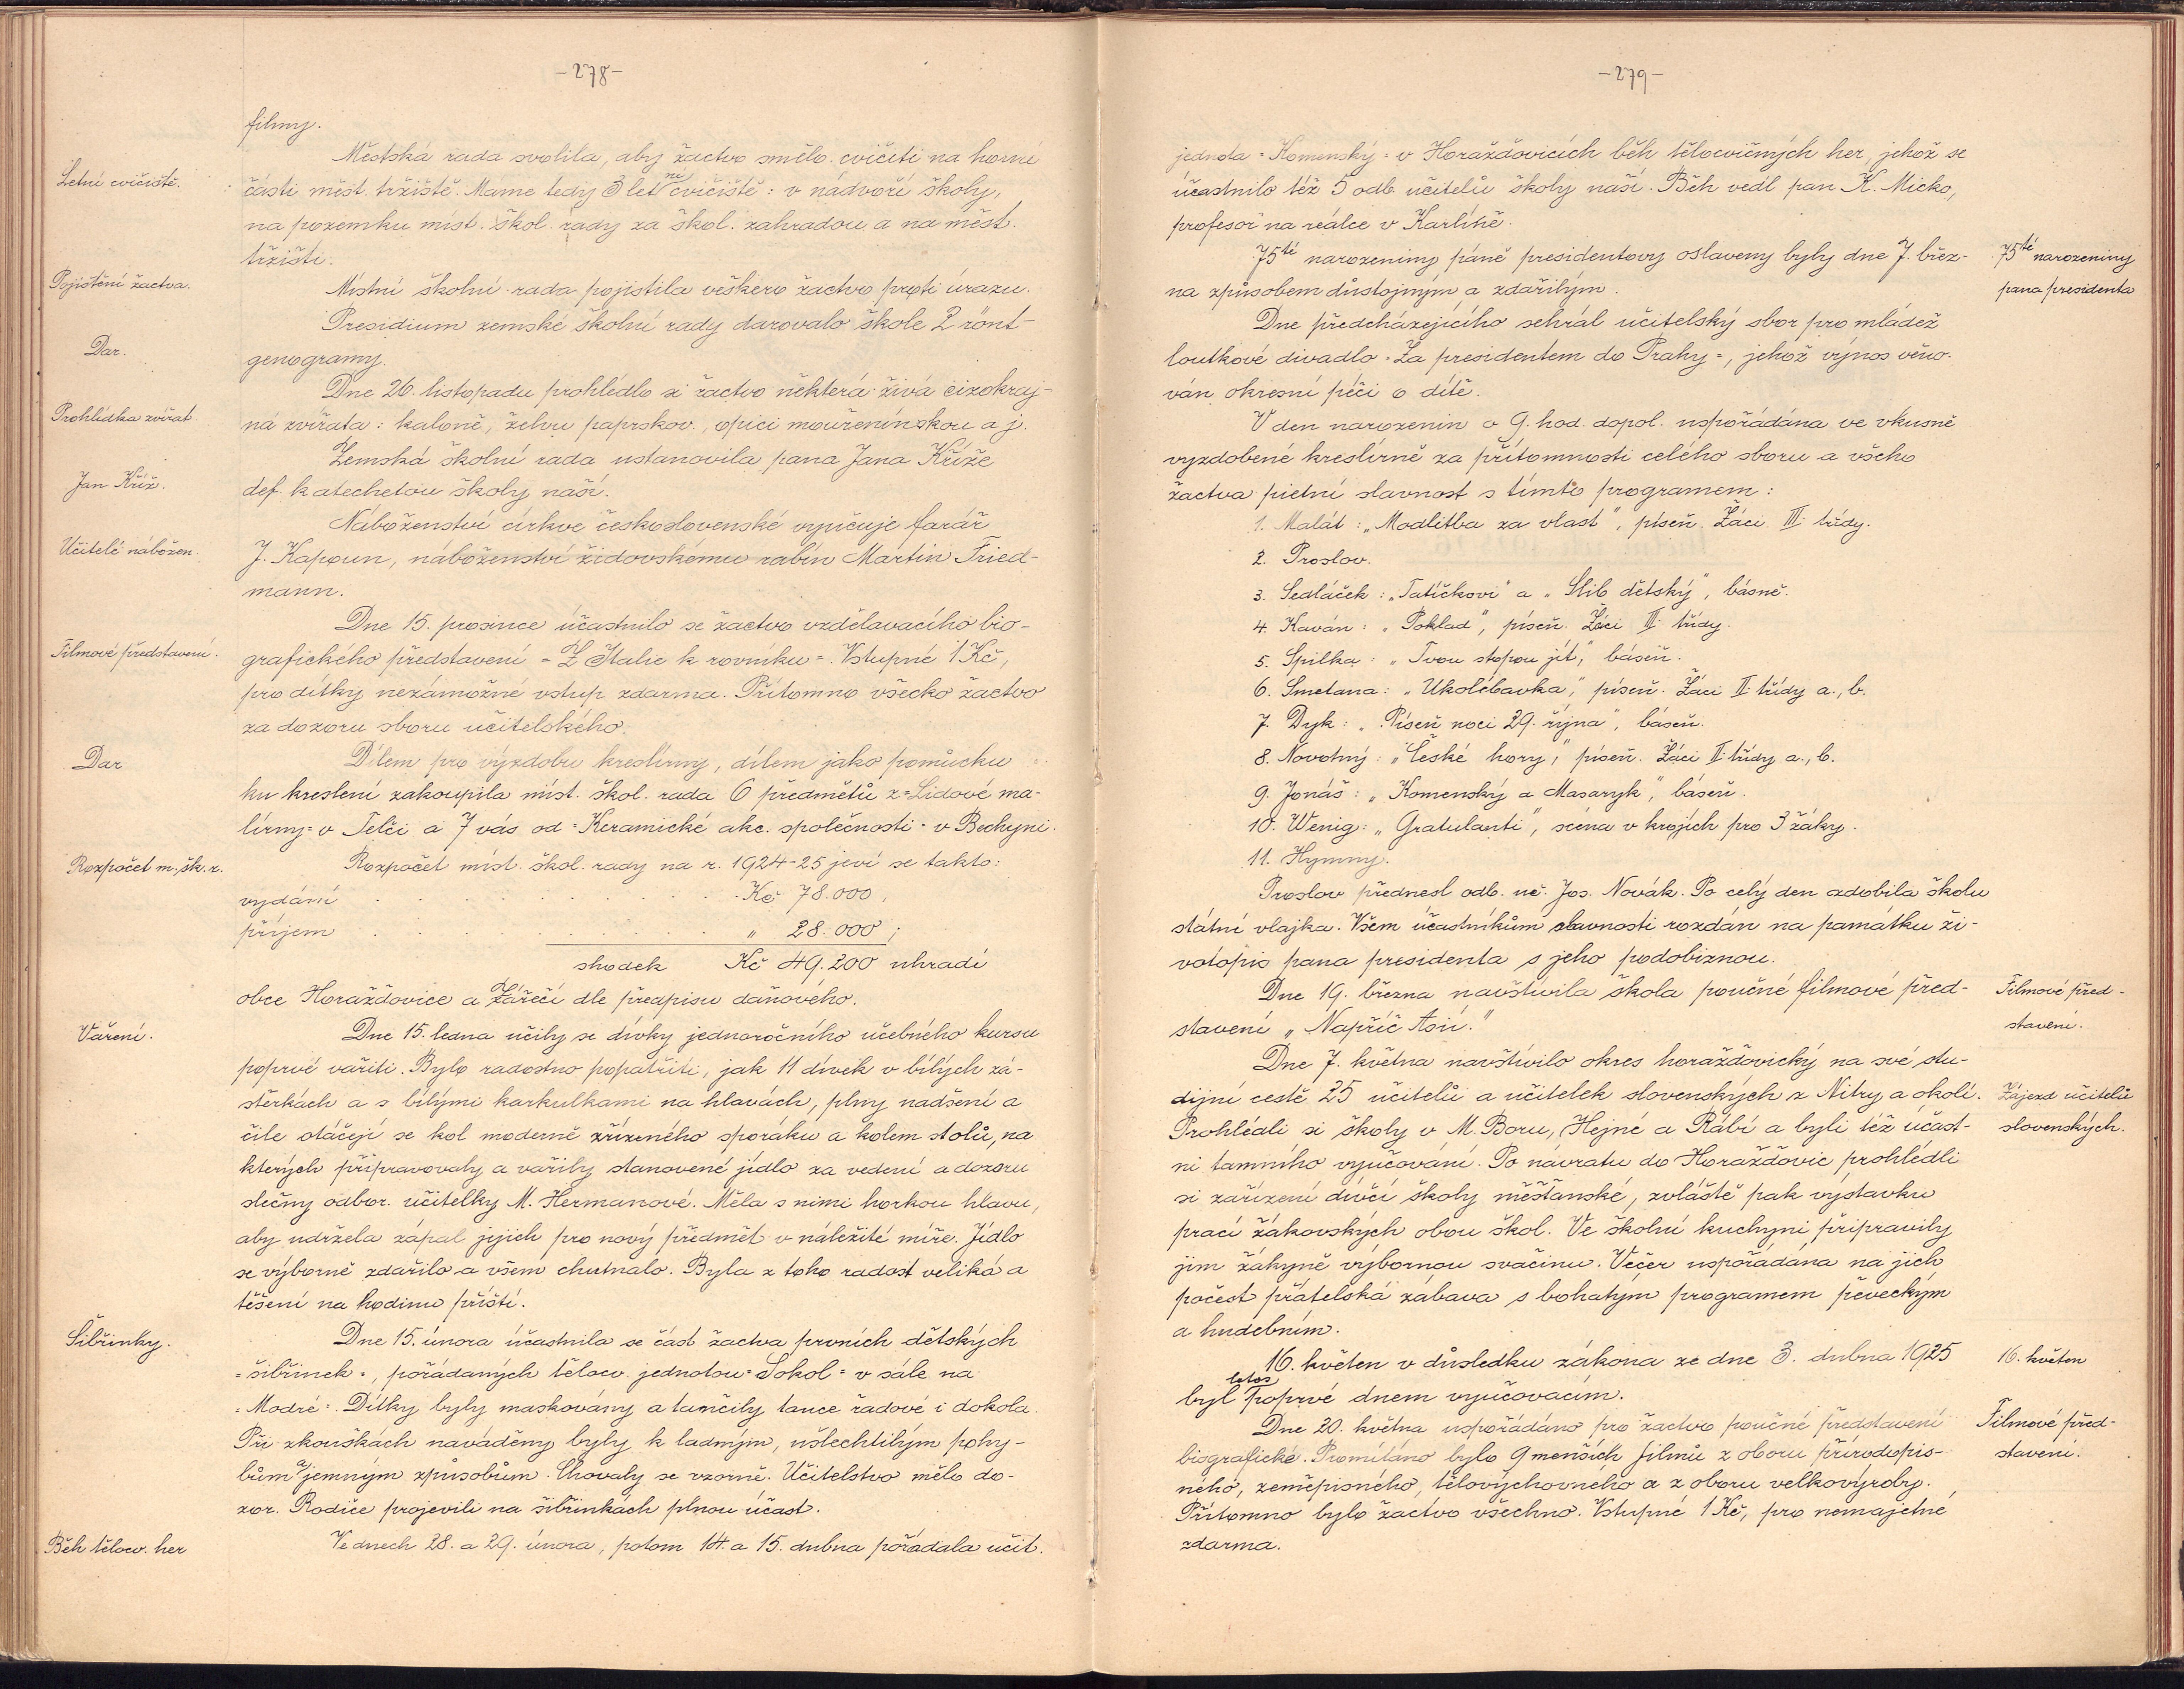 -278-
filmy.
Městská rada svolila, aby žactvo smělo cvičiti na horní
Letní cvičiště.
části měst. tržiště. Máme tedy 3 letní cvičiště: v nádvoří školy,
na pozemku míst. škol. rady za škol. zahradou a na měst.
tržišti.
Pojištění žactva.
Místní školní rada pojistila veškero žactvo proti úrazu.
Presidium zemské školní rady darovalo škole 2 rönt-
Dar.
genogramy.
Dne 26. listopadu prohlédlo si žactvo některá živá cizokraj-
Prohlídka zvířat
ná zvířata: kaloně, želvu paprskov., opici mouřenínskou a j.
Zemská školní rada ustanovila pana Jana Kříže
Jan Kříž.
def. katechetou školy naší.
Náboženství církve československé vyučuje farář
Učitelé nábožen.
J. Kapoun, náboženství židovskému rabín Martin Fried-
mann.
Dne 15. prosince účastnilo se žactvo vzdělavacího bio-
Filmové představení.
grafického představení "Z Italie k rovníku". Vstupné 1 Kč,
pro dítky nezámožné vstup zdarma. Přítomno všecko žactvo
za dozoru sboru učitelského.
Dar
Dílem pro výzdobu kreslírny, dílem jako pomůcku
ku kreslení zakoupila míst. škol. rada 6 předmětů z "Lidové ma-
lírny" v Telči a 7 vás od "Keramické akc. společnosti" v Bechyni.
Rozpočet m. šk. r.
Rozpočet míst. škol. rady na r. 1924-25 jeví se takto:
vydání . . . . . . . . . . Kč 78.000,
příjem . . . . . . . . . . " 28.000;
shodek Kč 49.200 uhradí
obce Horažďovice a Zářečí dle předpisu daňového.
Vaření.
Dne 15. ledna učily se dívky jednoročního učebného kursu
poprvé vařiti. Bylo radostno popatřiti, jak 11 dívek v bílých zá-
stěrkách a s bílými karkulkami na hlavách, plny nadšení a
čile otáčejí se kol moderně zřízeného sporáku a kolem stolů, na
kterých připravovaly a vařily stanovené jídlo za vedení a dozoru
slečny odbor. učitelky M. Hermanové. Měla s nimi horkou hlavu,
aby udržela zápal jejich pro nový předmět v náležité míře. Jídlo
se výborně zdařilo a všem chutnalo. Byla z toho radost veliká a
těšení na hodinu příští.
Šibřinky.
Dne 15. února účastnila se část žactva prvních dětských
"šibřinek", pořádaných těloc. jednotou "Sokol" v sále na
"Modré". Dítky byly maskovány a tančily tance řadové i dokola.
Při zkouškách naváděny byly k ladným, ušlechtilým pohy-
bům a jemným způsobům. Chovaly se vzorně. Učitelstvo mělo do-
zor. Rodiče projevili na šibřinkách plnou účast.
Běh těloc. her
Ve dnech 28. a 29. února, potom 14. a 15. dubna pořádala učit.
-279-
jednota "Komenský" v Horažďovicích běh tělocvičných her, jehož se
účastnilo též 5 odb. učitelů školy naší. Běh vedl pan K. Micko,
profesor na reálce v Karlíně.
75té narozeniny páně presidentovy oslaveny byly dne 7. břez-
75té narozeniny
na způsobem důstojným a zdařilým.
pana presidenta
Dne předcházejícího sehrál učitelský sbor pro mládež
loutkové divadlo "Za presidentem do Prahy", jehož výnos věno-
ván okresní péči o dítě.
V den narozenin o 9. hod. dopol. uspořádána ve vkusně
vyzdobené kreslírně za přítomnosti celého sboru a všeho
žactva pietní slavnost s tímto programem:
1. Malát: „Modlitba za vlast", píseň. Žáci III. třídy.
2. Proslov.
3. Sedláček: „Tatíčkovi" a „Slib dětský", básně.
4. Kaván: „Poklad", píseň. Žáci II. třídy.
5. Spilka: „Tvou stopou jít," báseň.
6. Smetana: „Ukolébavka," píseň. Žáci II. třídy a., b.
7. Dyk: „Píseň noci 29. října", báseň.
8. Novotný: „České hory," píseň. Žáci II. třídy a., b.
9. Jonáš: „Komenský a Masaryk", báseň.
10. Wenig: „Gratulanti", scéna v krojích pro 3 žáky.
11. Hymny.
Proslov přednesl odb. uč. Jos. Novák. Po celý den zdobila školu
státní vlajka. Všem účastníkům slavnosti rozdán na památku ži-
votopis pana presidenta s jeho podobiznou.
Dne 19. března navštívila škola poučné filmové před-
Filmové před-
stavení „Napříč Asií."
stavení.
Dne 7. května navštívilo okres horažďovický na své stu-
dijní cestě 25 učitelů a učitelek slovenských z Nitry a okolí.
Zájezd učitelů
Prohlédli si školy v M. Boru, Hejné a Rábí a byli též účast-
slovenských.
ni tamního vyučování. Po návratu do Horažďovic prohlédli
si zařízení dívčí školy měšťanské, zvláště pak výstavku
prací žákovských obou škol. Ve školní kuchyni připravily
jim žákyně výbornou svačinu. Večer uspořádána na jich
počest přátelská zábava s bohatým programem pěveckým
a hudebním.
16. květen v důsledku zákona ze dne 3. dubna 1925
16. květen
byl letos poprvé dnem vyučovacím.
Dne 20. května uspořádáno pro žactvo poučné představení
Filmové před-
biografické. Promítáno bylo 9 menších filmů z oboru přírodopis-
stavení.
ného, zeměpisného, tělovýchovného a z oboru velkovýroby.
Přítomno bylo žactvo všechno. Vstupné 1 Kč, pro nemajetné
zdarma.